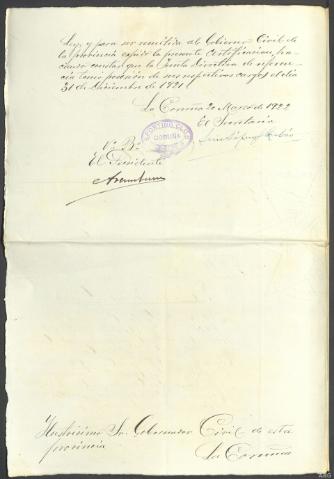 y para ser remitida al Gobierno Civil de
la provincia expido la presente certificacion, ha-
ciendo constar que la Junta Directiva de referen-
cia tomó posesión de sus respectivos cargos el dia
31 de Diciembre de 1921.
La Coruña 20 Marzo de 1922
El Secretario
Vº Bº
El Presidente
SPORTING CLUB
CORUÑA
Ilustrisimo Sr. Gobernador Civil de esta
provincia
La Coruña